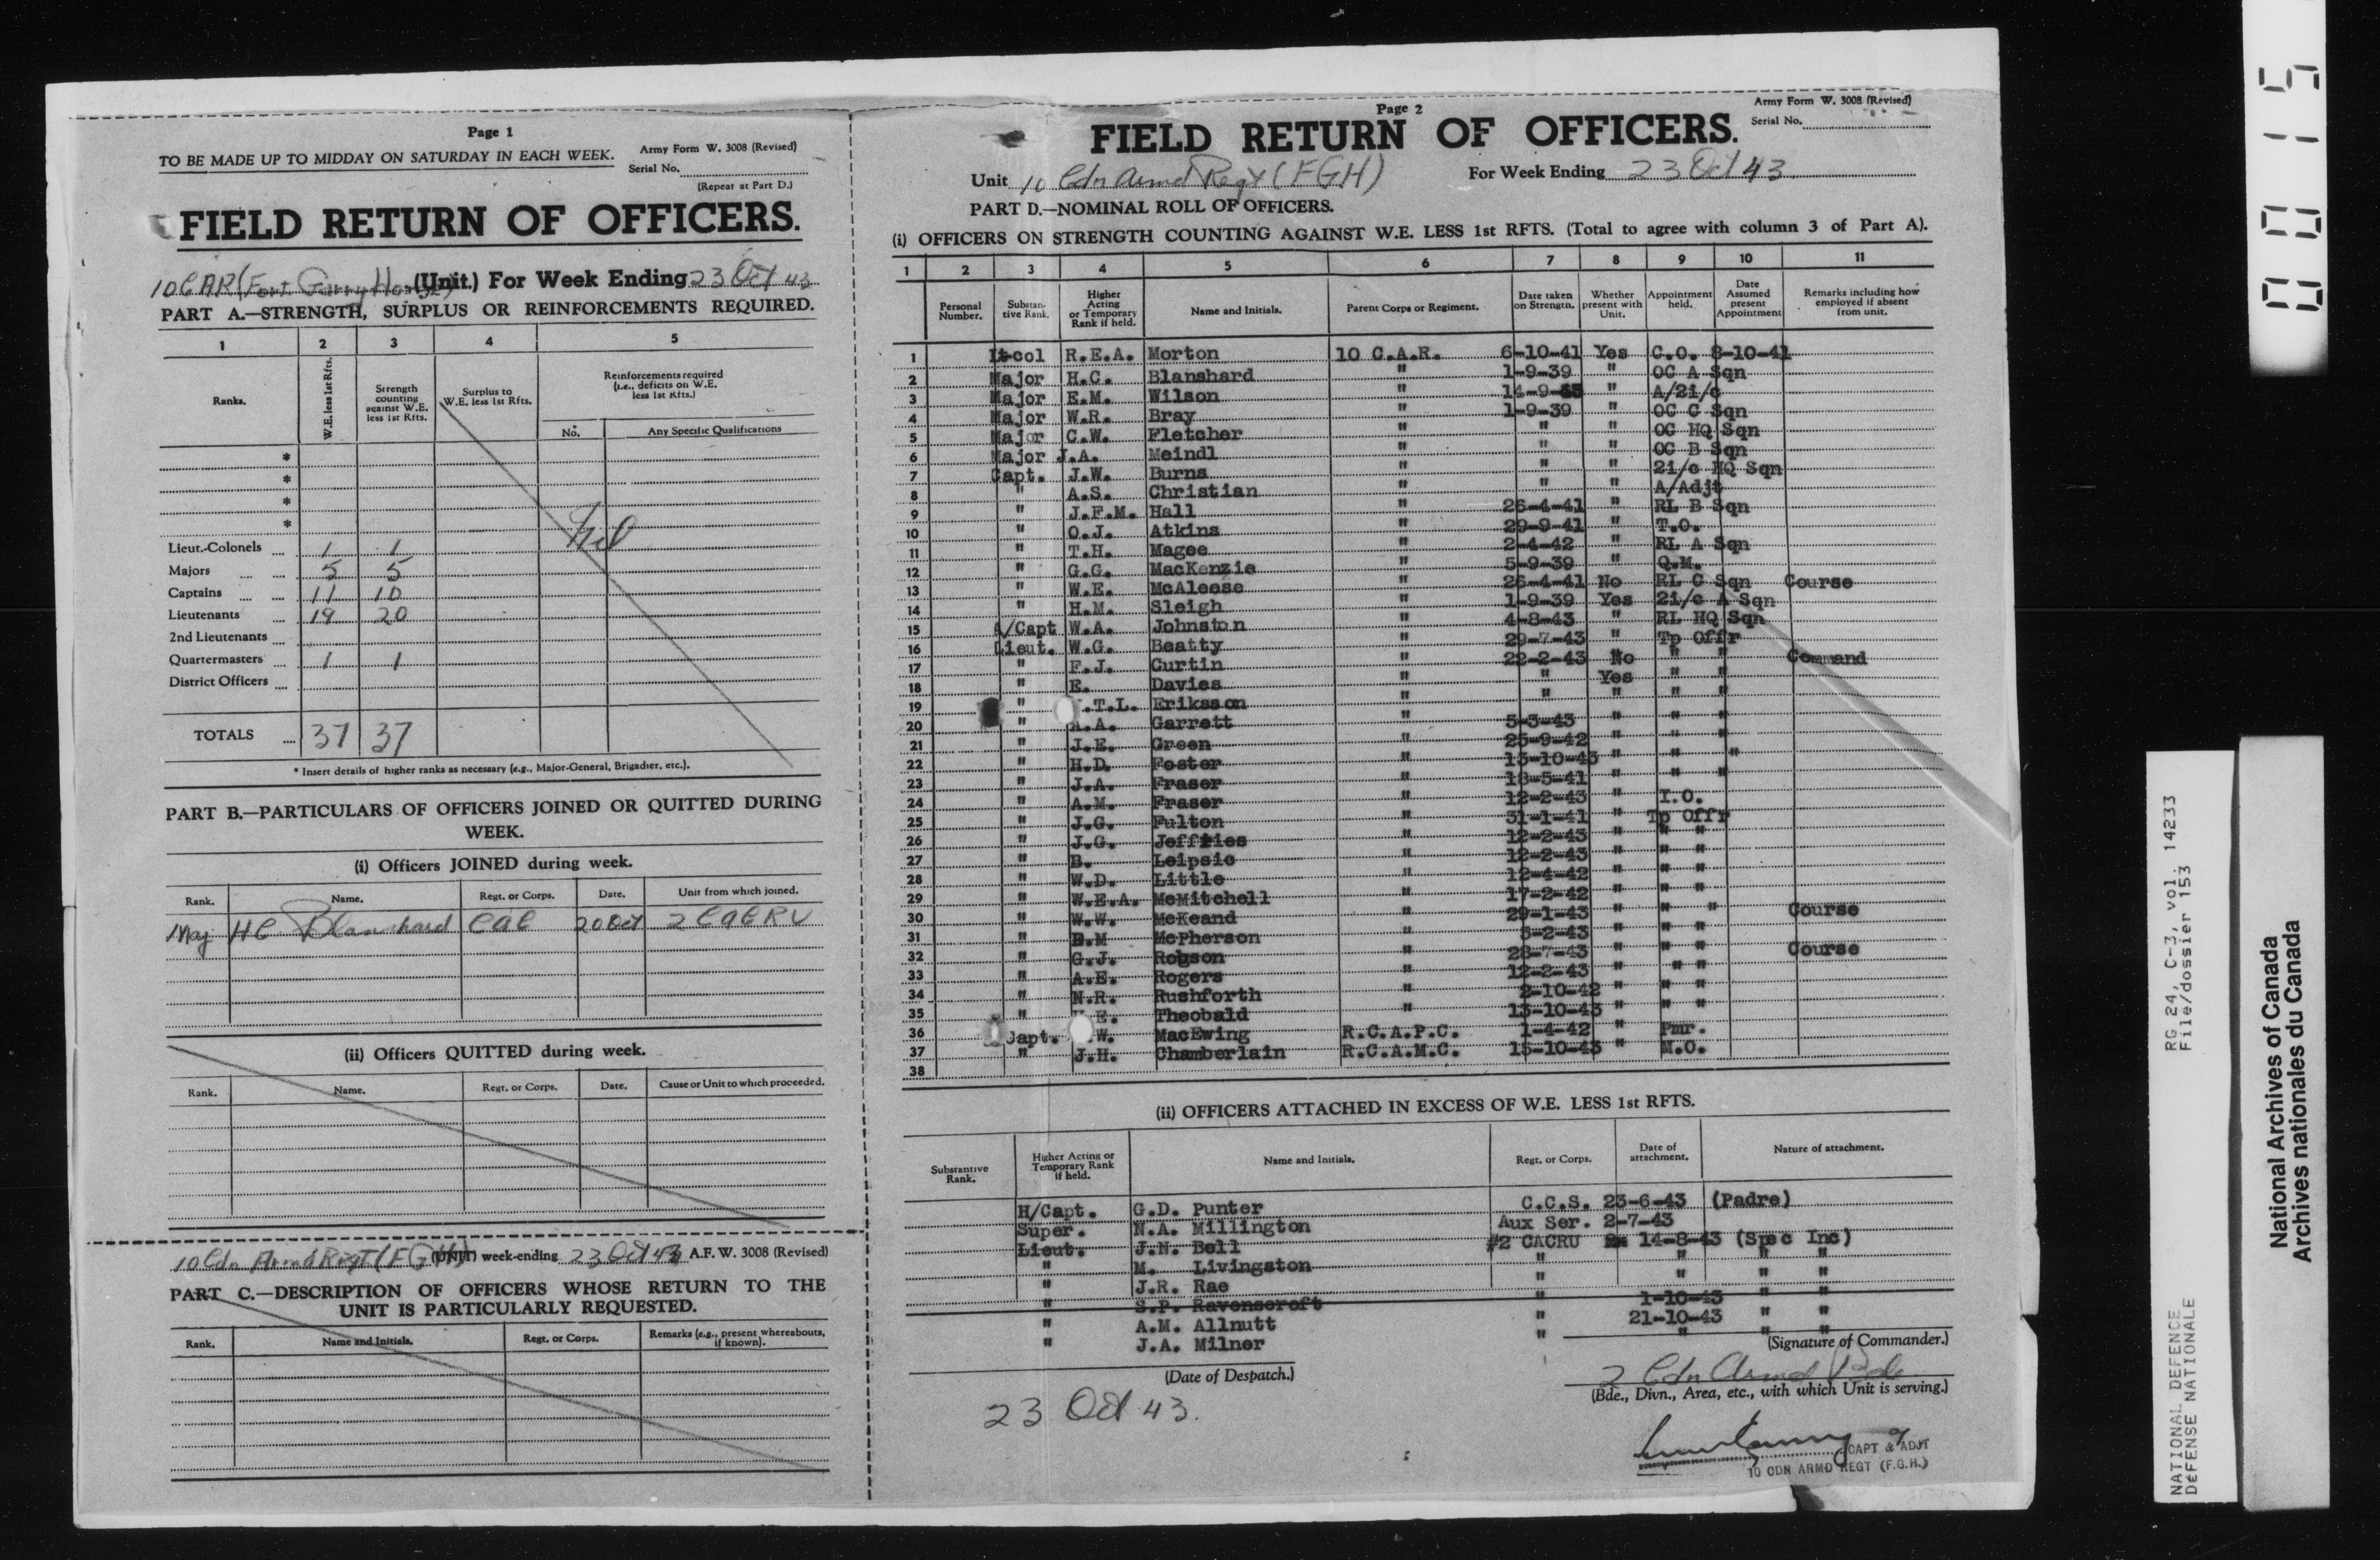 Page 1
TO BE MADE UP TO MIDDAY ON SATURDAY IN EACH WEEK.
Army Form W. 3008 (Revised)
Serial No.
(Repeat at Part D.)
FIELD RETURN OF OFFICERS.
10 CAR (Fort Garry Horse) (Unit.) For Week Ending 23 Oct 43
PART A.—STRENGTH, SURPLUS OR REINFORCEMENTS REQUIRED.
1 2 3 4 5
Ranks. W.E. less 1st Rfts. Strength counting against W.E. less 1st Rfts. Surplus to W.E. less 1st Rfts. Reinforcements required (i.e., deficits on W.E. less 1st Rfts.)
No. Any Specific Qualifications
*
*
*
*
Nil
Lieut.-Colonels ... 1 1
Majors ... ... 5 5
Captains ... ... 11 10
Lieutenants ... 19 20
2nd Lieutenants ...
Quartermasters ... 1 1
District Officers ...
TOTALS ... 37 37
* Insert details of higher ranks as necessary (e.g., Major-General, Brigadier, etc.).
PART B.—PARTICULARS OF OFFICERS JOINED OR QUITTED DURING WEEK.
(i) Officers JOINED during week.
Rank. Name. Regt. or Corps. Date. Unit from which joined.
Maj HC Blanshard CAC 20 Oct 2 CACRU
(ii) Officers QUITTED during week.
Rank. Name. Regt. or Corps. Date. Cause or Unit to which proceeded.
10 Cdn Armd Regt (FGH) (UNIT) week-ending 23 Oct 43 A.F.W. 3008 (Revised)
PART C.—DESCRIPTION OF OFFICERS WHOSE RETURN TO THE UNIT IS PARTICULARLY REQUESTED.
Rank. Name and Initials. Regt. or Corps. Remarks (e.g., present whereabouts, if known).
Page 2
Army Form W. 3008 (Revised)
Serial No.
FIELD RETURN OF OFFICERS.
Unit 10 Cdn Armd Regt (FGH) For Week Ending 23 Oct 43
PART D.—NOMINAL ROLL OF OFFICERS.
(i) OFFICERS ON STRENGTH COUNTING AGAINST W.E. LESS 1st RFTS. (Total to agree with column 3 of Part A).
1 2 3 4 5 6 7 8 9 10 11
Personal Number. Substantive Rank. Higher Acting or Temporary Rank if held. Name and Initials. Parent Corps or Regiment. Date taken on Strength. Whether present with Unit. Appointment held. Date Assumed present Appointment Remarks including how employed if absent from unit.
1 Lt-col R.E.A. Morton 10 C.A.R. 6-10-41 Yes C.O. 8-10-41
2 Major H.C. Blanshard " 1-9-39 " OC A Sqn
3 Major E.M. Wilson " 14-9- " A/2i/c
4 Major W.R. Bray " 1-9-39 " OC C Sqn
5 Major C.W. Fletcher " " " OC HQ Sqn
6 Major J.A. Meindl " " " OC B Sqn
7 Capt. J.W. Burns " " " 2i/c HQ Sqn
8 " A.S. Christian " " " A/Adjt
9 " J.F.M. Hall " 26-4-41 " RL B Sqn
10 " O.J. Atkins " 29-9-41 " T.O.
11 " T.H. Magee " 2-4-42 " RL A Sqn
12 " G.G. MacKenzie " 5-9-39 " Q.M.
13 " W.E. McAleese " 26-4-41 No RL C Sqn Course
14 " H.M. Sleigh " 1-9-39 Yes 2i/c A Sqn
15 A/Capt W.A. Johnston " 4-8-43 " RL HQ Sqn
16 Lieut. W.G. Beatty " 29-7-43 " Tp Offr
17 " F.J. Curtin " 22-2-43 No " " Command
18 " E. Davies " " Yes " "
19 " .T.L. Eriksson " " " " "
20 " A.A. Garrett " 5-3-43 " " "
21 " J.E. Green " 25-9-42 " " "
22 " H.D. Foster " 13-10-43 " " "
23 " J.A. Fraser " 18-5-41 " " "
24 " A.M. Fraser " 12-2-43 " I.O.
25 " J.G. Fulton " 31-1-41 " Tp Offr
26 " J.G. Jeffries " 12-2-43 " " "
27 " B. Leipsic " 12-2-43 " " "
28 " W.D. Little " 12-4-42 " " "
29 " W.E.A. McMitchell " 17-2-42 " " "
30 " W.W. McKeand " 29-1-43 " " " Course
31 " B.M McPherson " 5-2-43 " " "
32 " G.J. Robson " 28-7-43 " " " Course
33 " A.E. Rogers " 12-2-43 " " "
34 " N.R. Rushforth " 2-10-42 " " "
35 " E. Theobald " 13-10-43 " " "
36 Capt. W. MacEwing R.C.A.P.C. 1-4-42 " Pmr.
37 " J.H. Chamberlain R.C.A.M.C. 15-10-43 " M.O.
38
(ii) OFFICERS ATTACHED IN EXCESS OF W.E. LESS 1st RFTS.
Substantive Rank. Higher Acting or Temporary Rank if held. Name and Initials. Regt. or Corps. Date of attachment. Nature of attachment.
H/Capt. G.D. Punter C.C.S. 23-6-43 (Padre)
Super. N.A. Millington Aux Ser. 2-7-43
Lieut. J.N. Bell #2 CACRU 14-8-43 (Spec Inc)
" M. Livingston " " " "
" J.R. Rae " " " "
" S.P. Ravenscroft " 1-10-43 " "
" A.M. Allnutt " 21-10-43 " "
" J.A. Milner " " " "
(Signature of Commander.)
(Date of Despatch.)
23 Oct 43.
2 Cdn Armd Bde
(Bde., Divn., Area, etc., with which Unit is serving.)
CAPT & ADJT
10 CDN ARMD REGT (F.G.H.)
00115
RG 24, C-3, vol. 14233
File/dossier 153
NATIONAL DEFENCE
DÉFENSE NATIONALE
National Archives of Canada
Archives nationales du Canada